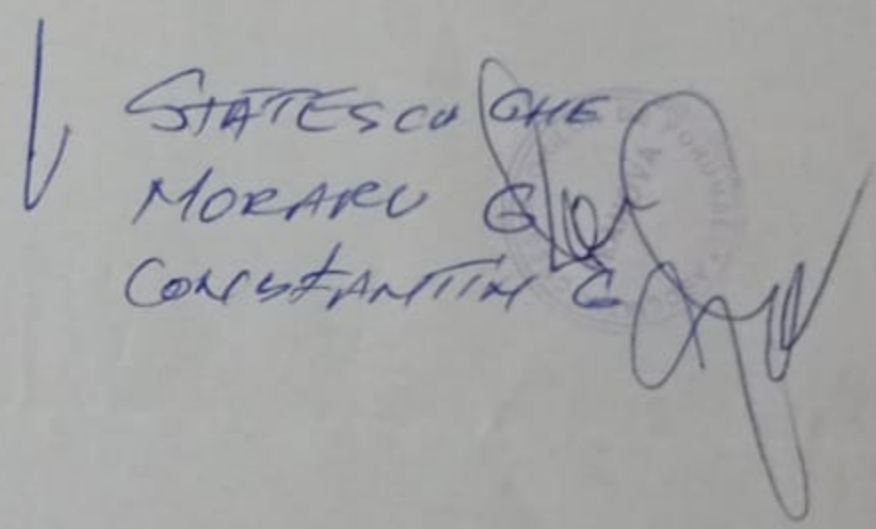 STATESCU GHE
MORARU G
CONSTANTIN G